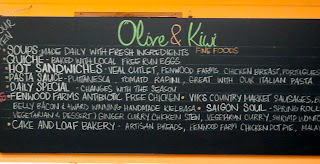 Olive & Kiwi
FINE FOODS
SOUPS MADE DAILY WITH FRESH INGREDIENTS
QUICHE - BAKED WITH LOCAL FREE RUN EGGS
HOT SANDWICHES - VEAL CUTLET, FENWOOD FARMS CHICKEN BREAST, PORTUGUES
PASTA SAUCE - PUTANESCA, TOMATO RAPINI, GREAT WITH OUR ITALIAN PASTA
DAILY SPECIAL - CHANGES WITH THE SEASON
FENWOOD FARMS ANTIBIOTIC FREE CHICKEN VIK'S COUNTRY MARKET SAUSAGES, B
BELLY BACON & AWARD WINNING HANDMADE KIELBASA SAIGON SOUL - SPRING ROLLS
VEGETARIAN & DESSERT) GINGER CURRY CHICKEN STEW, VEGETARIAN CURRY, SHRIMP WONTO
CAKE AND LOAF BAKERY - ARTISAN BREADS, FENWOOD FARM CHICKEN POT PIE, MALAY